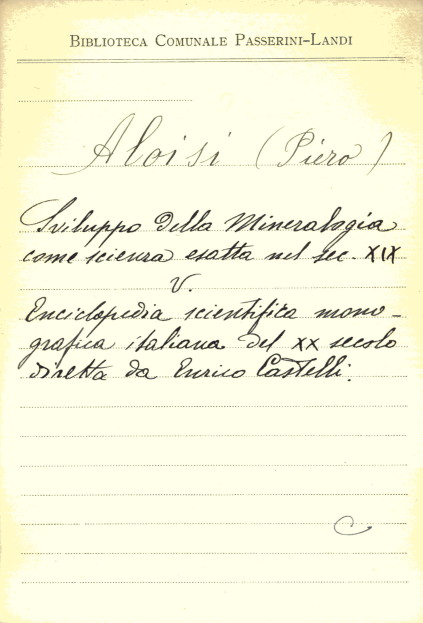 BIBLIOTECA COMUNALE PASSERINI-LANDI
Aloisi (Piero)
Sviluppo della Mineralogia
come scienza esatta nel sec. XIX
V.
Enciclopedia scientifica mono-
grafica italiana del XX secolo
diretta da Enrico Castelli.
C